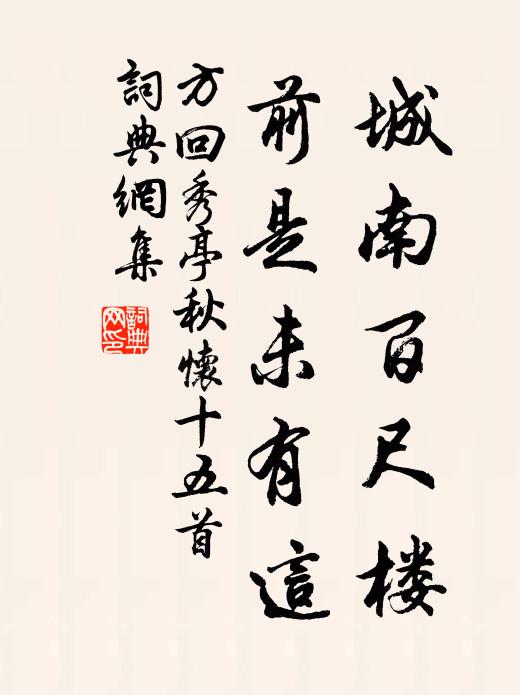 城南百尺楼
前是未有這
方回秀亭秋懷十五首
詞典網集
詞典网印